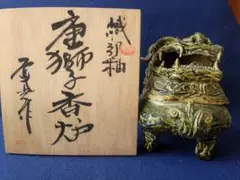 織部釉
唐獅子香炉
作